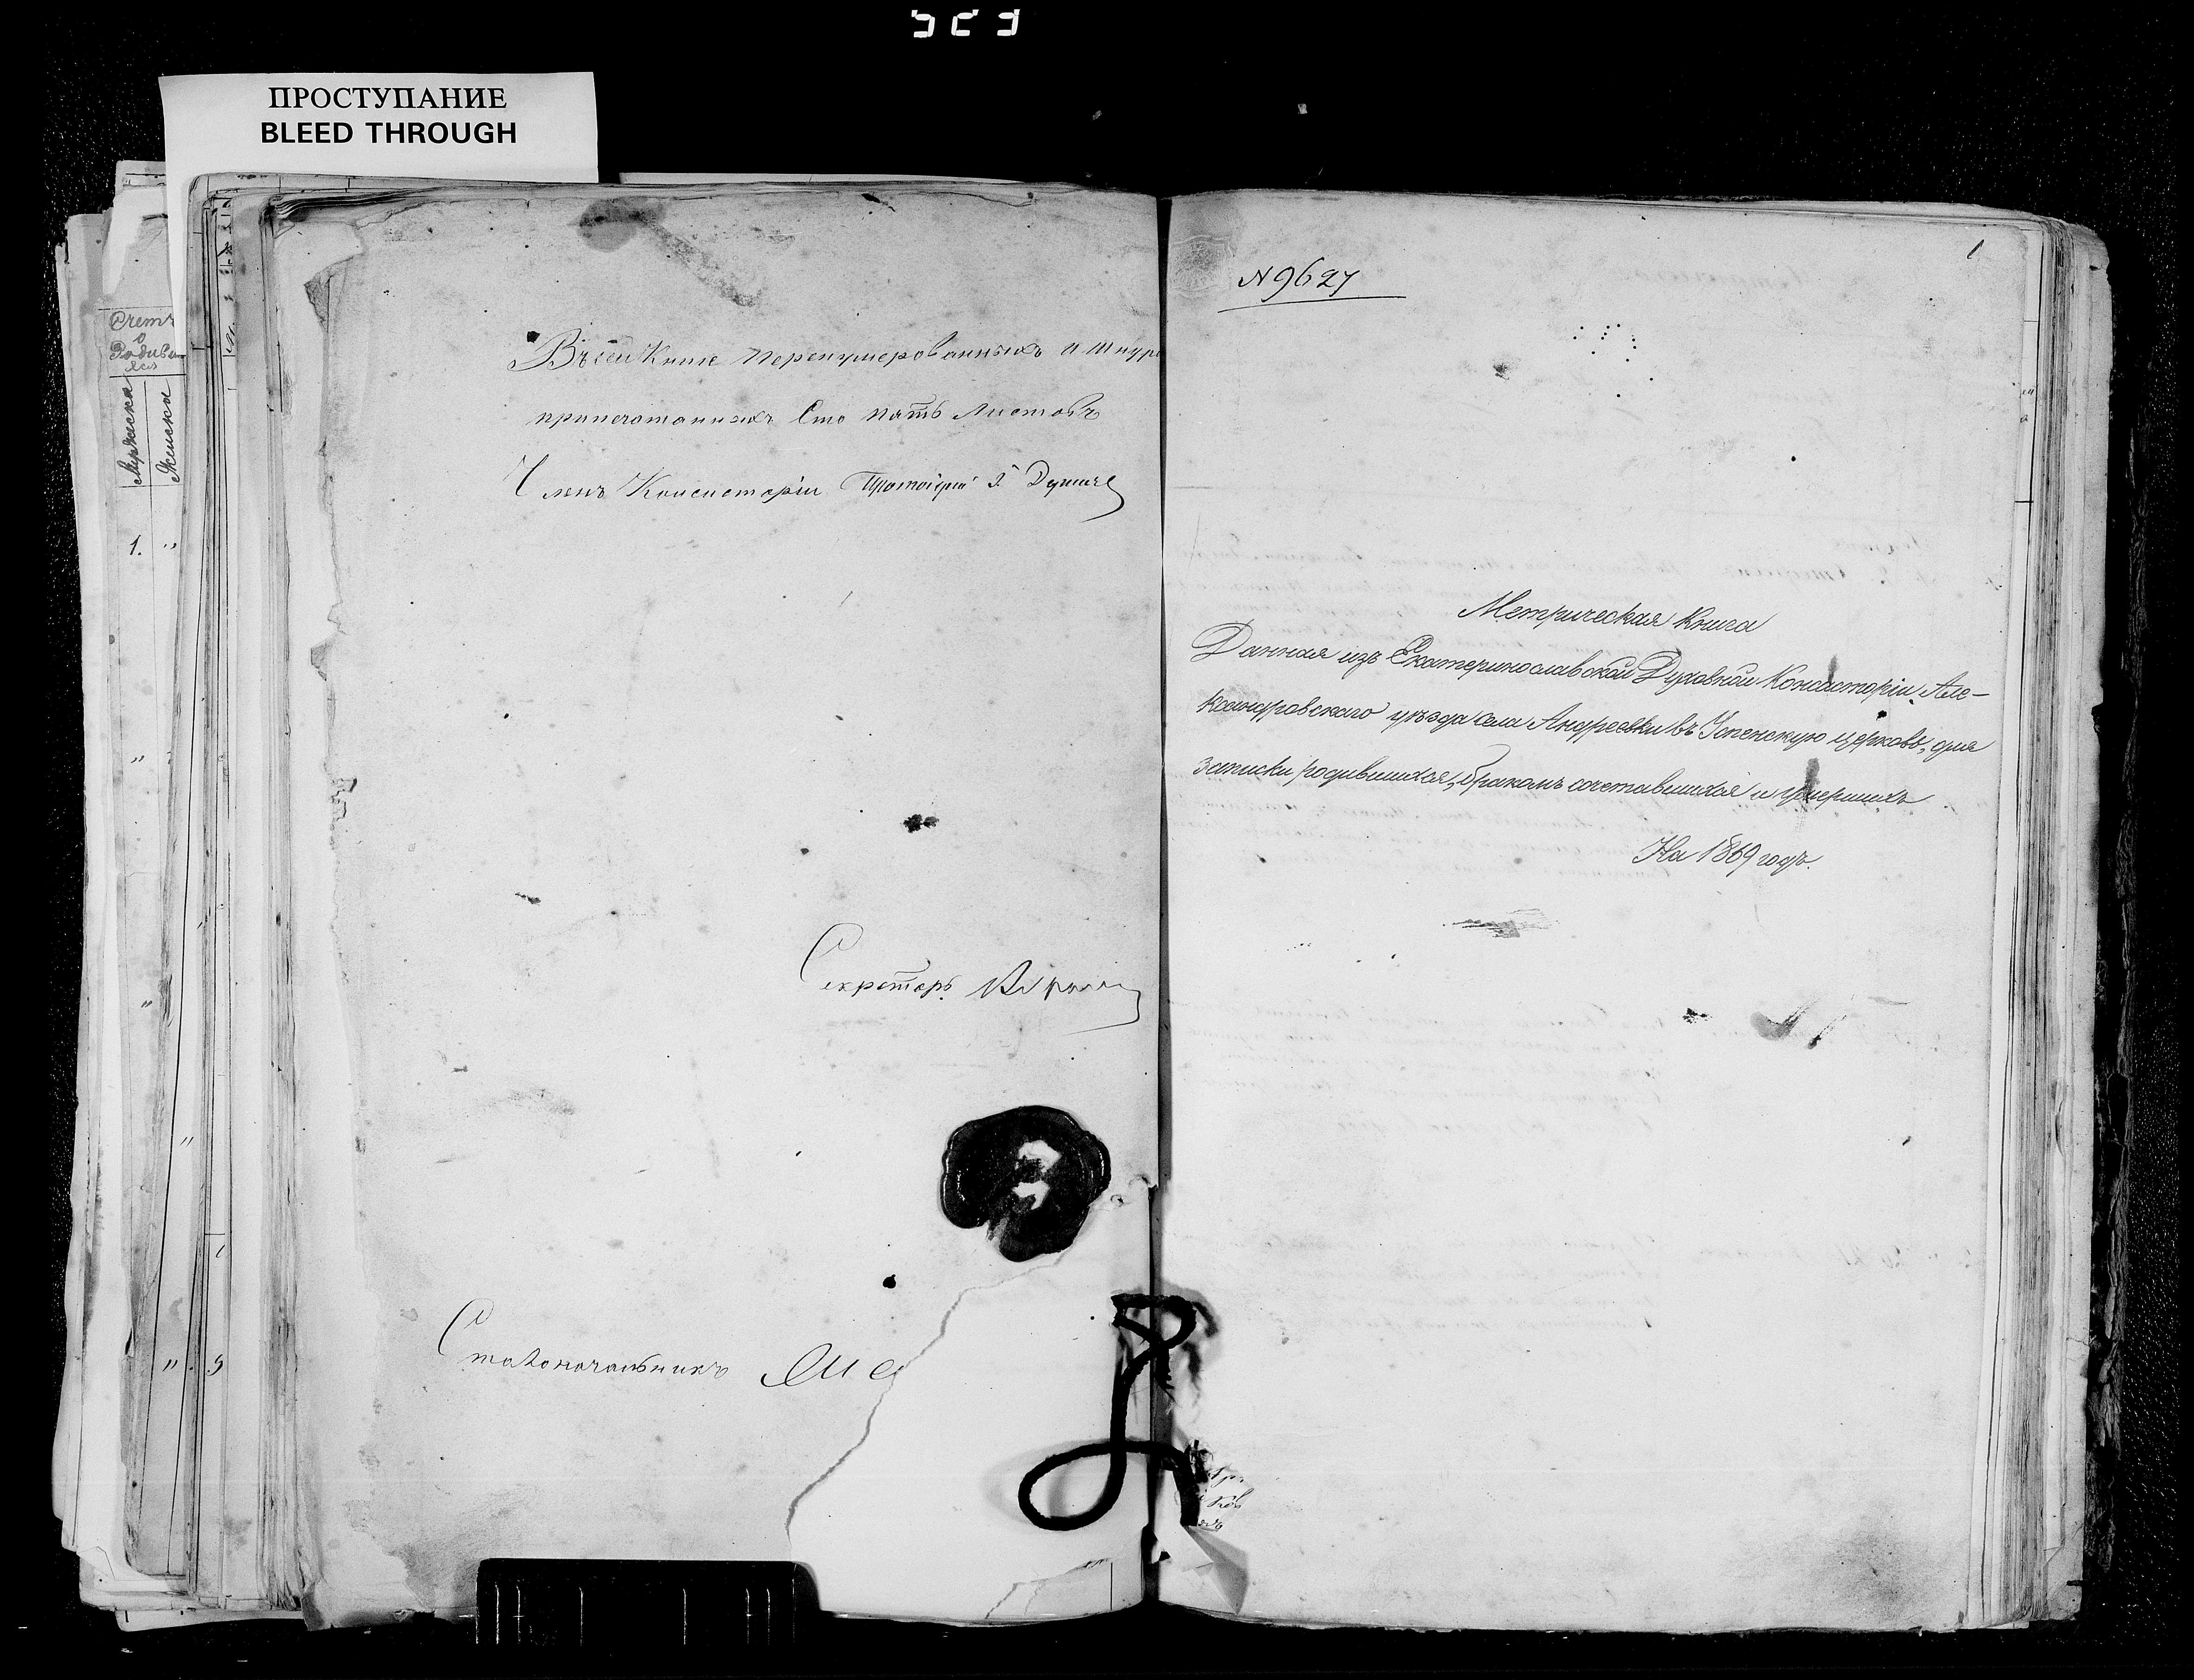 ПРОСТУПАНИЕ
BLEED THROUGH
Счетъ
Мужеска
Женска
1.
Въ сей Книге перенумерованныхъ и шнуро
припечатанныхъ Сто пять Листовъ
Членъ Консисторіи Протоіерей
Секретарь
Столоначальникъ
1
N 9627
Метрическая Книга
Данная изъ Екатеринославской Духовной Консисторіи, Але-
ксандровскаго уѣзда села Андреевки въ Успенскую церковь, для
записки родившихся, бракомъ сочетавшихся и умершихъ
На 1869 годъ.